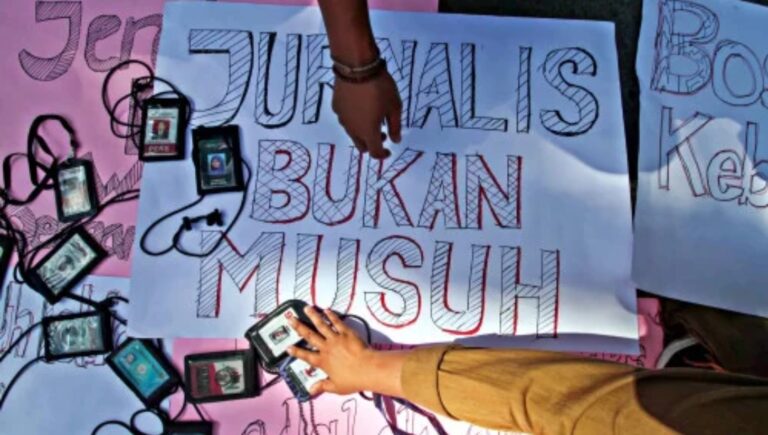 Jen
JURNALIS
BUKAN
MUSUH
Bos
Keb
PERS